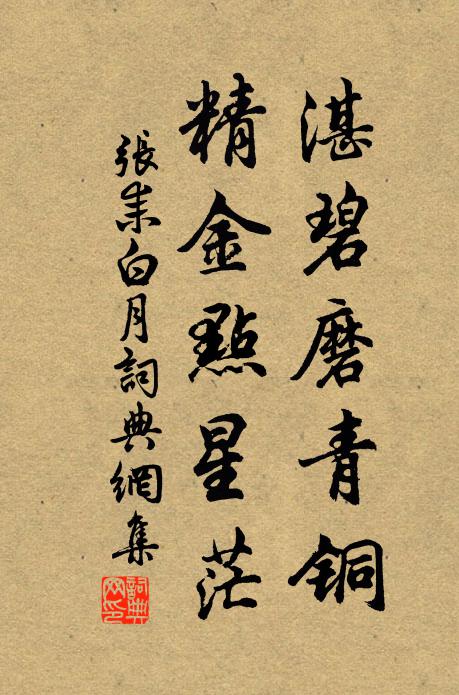 湛碧磨青铜
精金點星茫
張耒白月詞典網集
詞典
网印